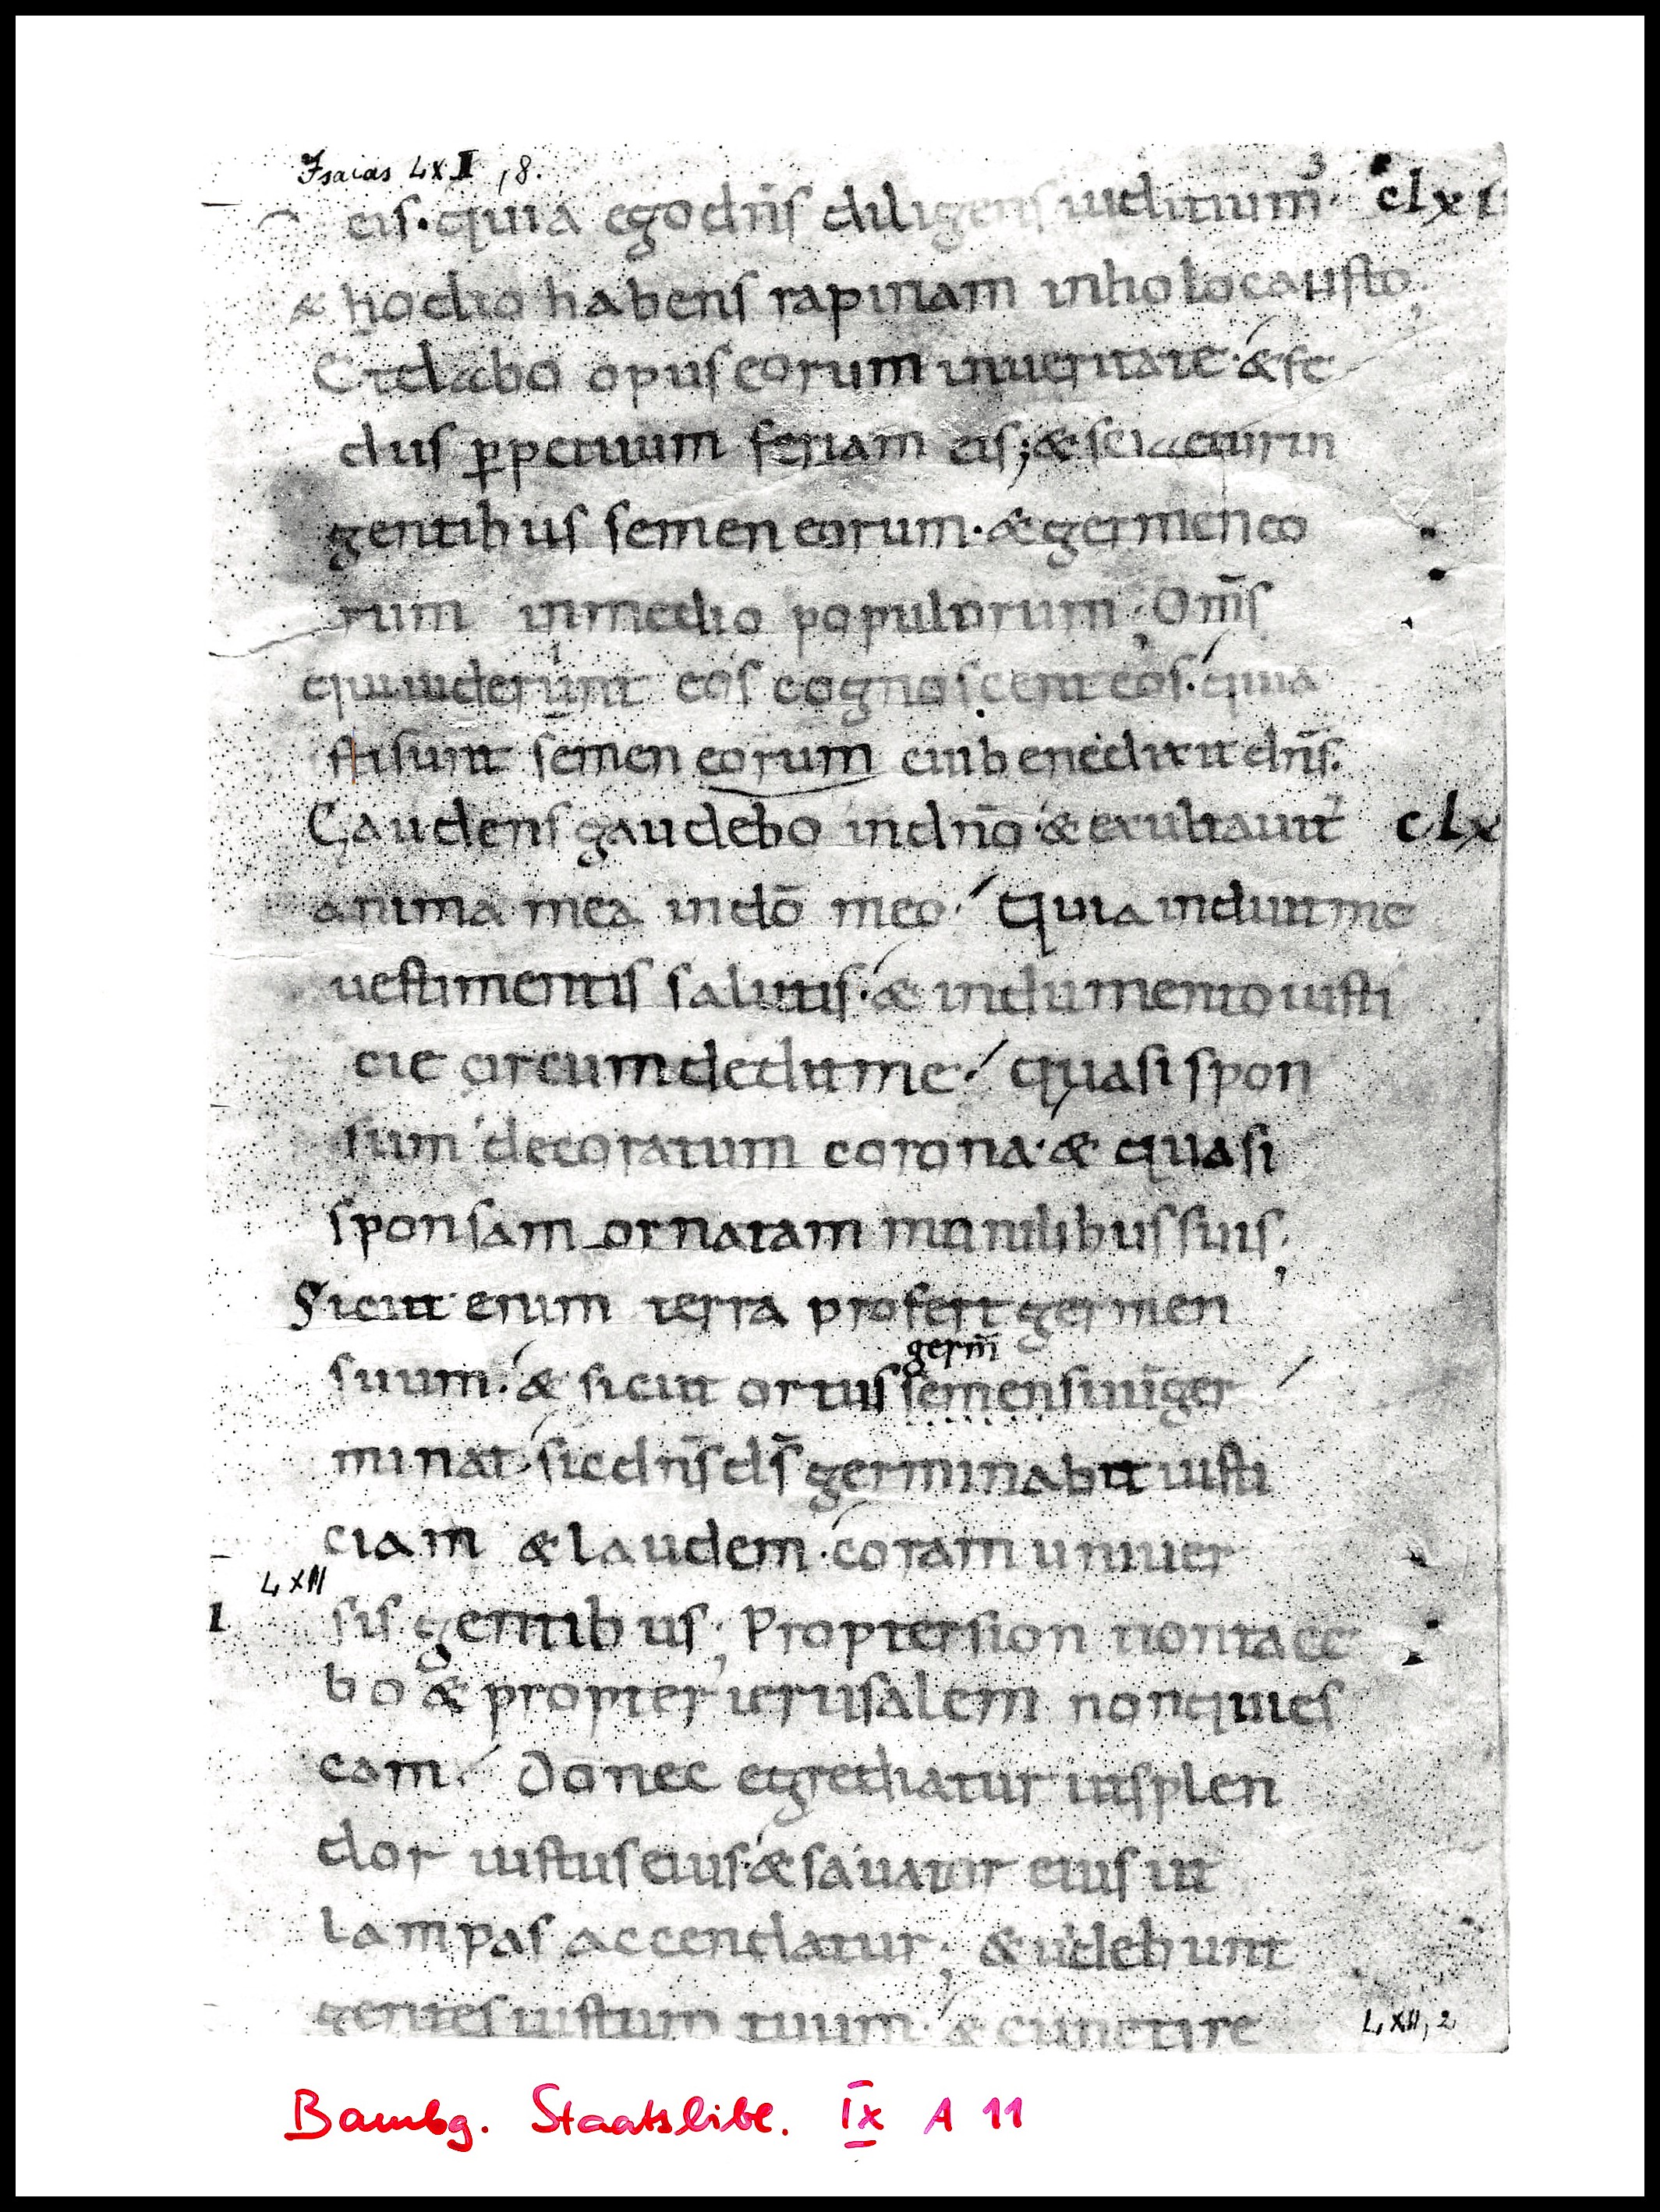 Isaias LXI, 8.
3
eis. quia ego dn̄s diligens iuditium. clxi
& hodio habens rapinam inholocausto;
Etdabo opus eorum inueritate. &fe
dus ꝑpetuum feriam eis; & scia&urin
gentibus semen eorum. & germen eo
rum inmedio populorum; Om̄s
quiuiderunt eos cognoscent eos. quia
istisunt semen eorum cuibenedixit dn̄s.
Gaudens gaudebo indn̄o. & exultauit clx
anima mea indō meo. Quia induitme
uestimentis salutis. & indumento iusti
cie circumdeditme. quasi spon
sum decoratum corona. & quasi
sponsam ornatam monilibus suis;
Sicut enim terra profert germen
germ̄
suum. & sicut ortus semen suūger
minat. sic dn̄s ds̄ germinabit iusti
ciam & laudem. coram uniuer
LXII
1 sis gentibus; Proptersion nontace
bo & propter ierusalem nonquies
cam. Donec egrediatur utsplen
dor iustus eius. & sauator eius ut
lampas accendatur; & uidebunt
gentes iustum tuum. & cunctire
LXII, 2
Bambg. Staatsbibl. IX A 11